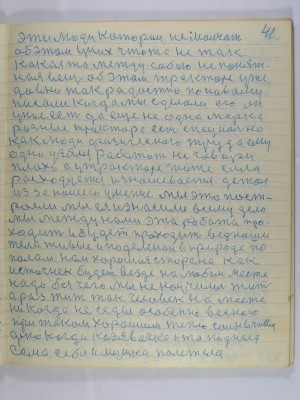 41
эти люди которои не молчат
об этом у них чтото не так
какая та между собою не понят-
ная вещ об этом тракторе уже
давно так радостно по нашему
писали когда мы сделали его он
уже ест да еще не одна марка
разная трактора ест специально
как люди физическаго труда ему
одно узбы работат не говоря
плохо а у трактора тоже сила
расходует изнашивается детал
из за нашего умение мы это пост-
роили мы изнаем всему дело
мы между нами эта работа про-
ходит и будет проходит в едином
теле живые и поделеной в природе по
полам нам хорошая сторона как
источник будет везде на любом месте
надо без чего мы не научимся жит
а раз жит так человек на месте
никогда не седи особенно весною
при таком хорошим тепло солнечным
дню когда козявочка и та поднела
сама себя и мушка полетела